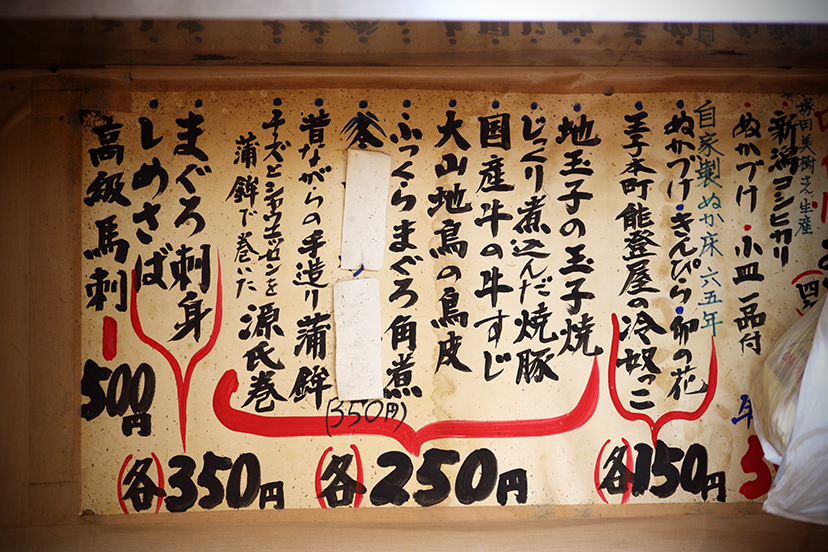 新潟コシヒカリ
ぬかづけ・小皿一品付
自家製ぬか床 六五年
ぬかづけ・きんぴら・卯の花
王子本町能登屋の冷奴っこ
各150円
地玉子の玉子焼
じっくり煮込んだ焼豚
国産牛の牛すじ
大山地鳥の鳥皮
ふっくらまぐろ角煮
(350円)
昔ながらの手造り蒲鉾
チーズとシャウエッセンを
蒲鉾で巻いた 源氏巻
各250円
まぐろ刺身
しめさば
各350円
高級馬刺
500円